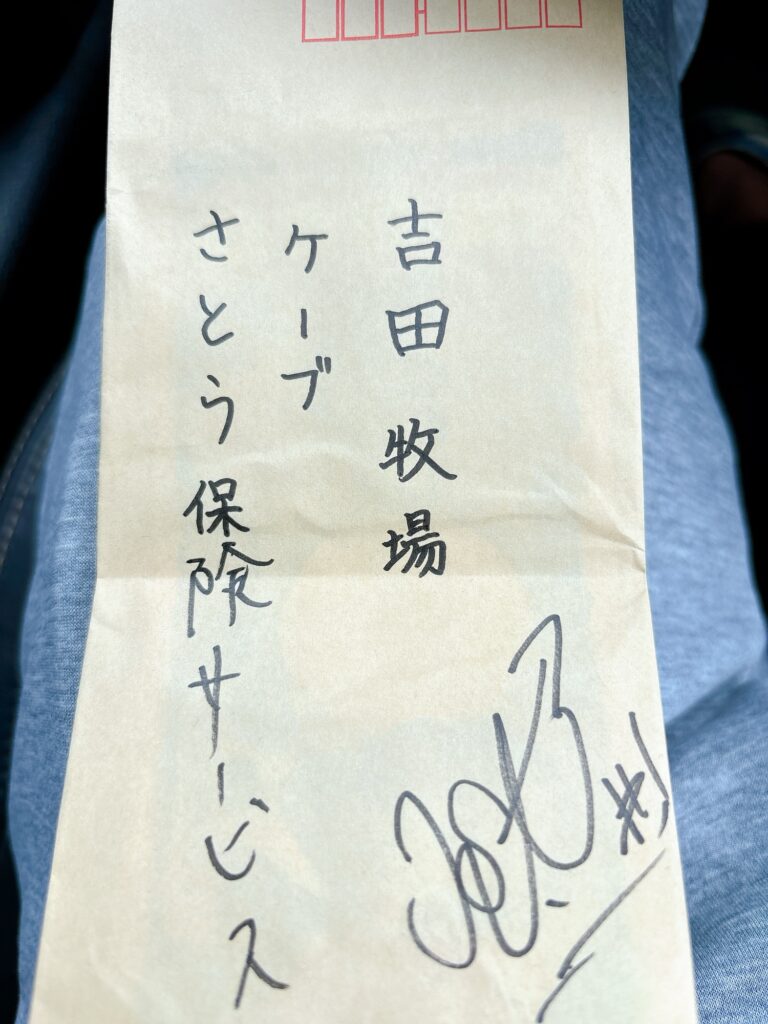 吉田牧場
ケーブ
さとう保険サービス
#1